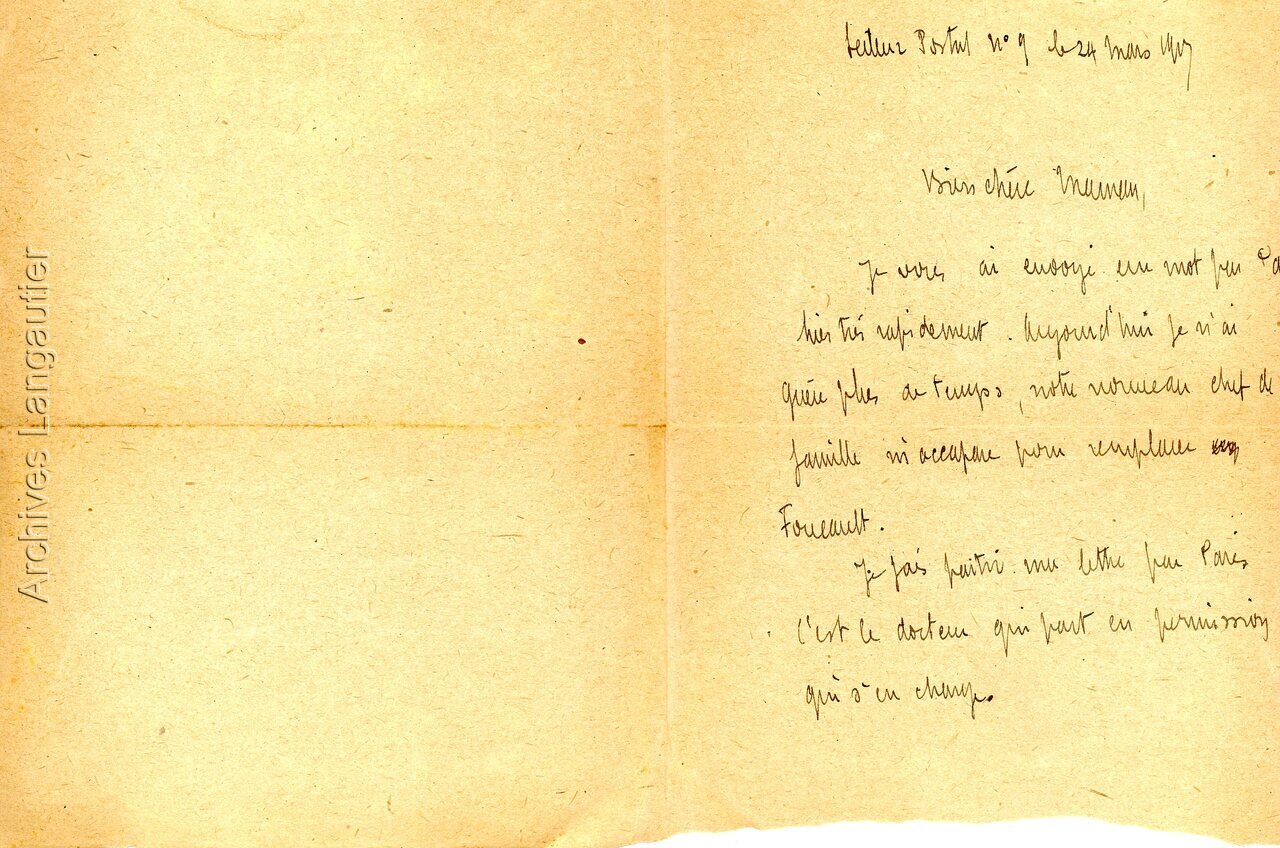 Secteur Postal n° 9 le 24 mars 1917
Bien chère Maman,
Je vous ai envoyé un mot par
hier très rapidement. Aujourd'hui je n'ai
guère plus de temps, notre nouveau chef de
famille m'accapare pour remplacer
Foucault.
Je fais partir ma lettre par Paris
c'est le docteur qui part en permission
qui s'en charge.
Archives Langautier